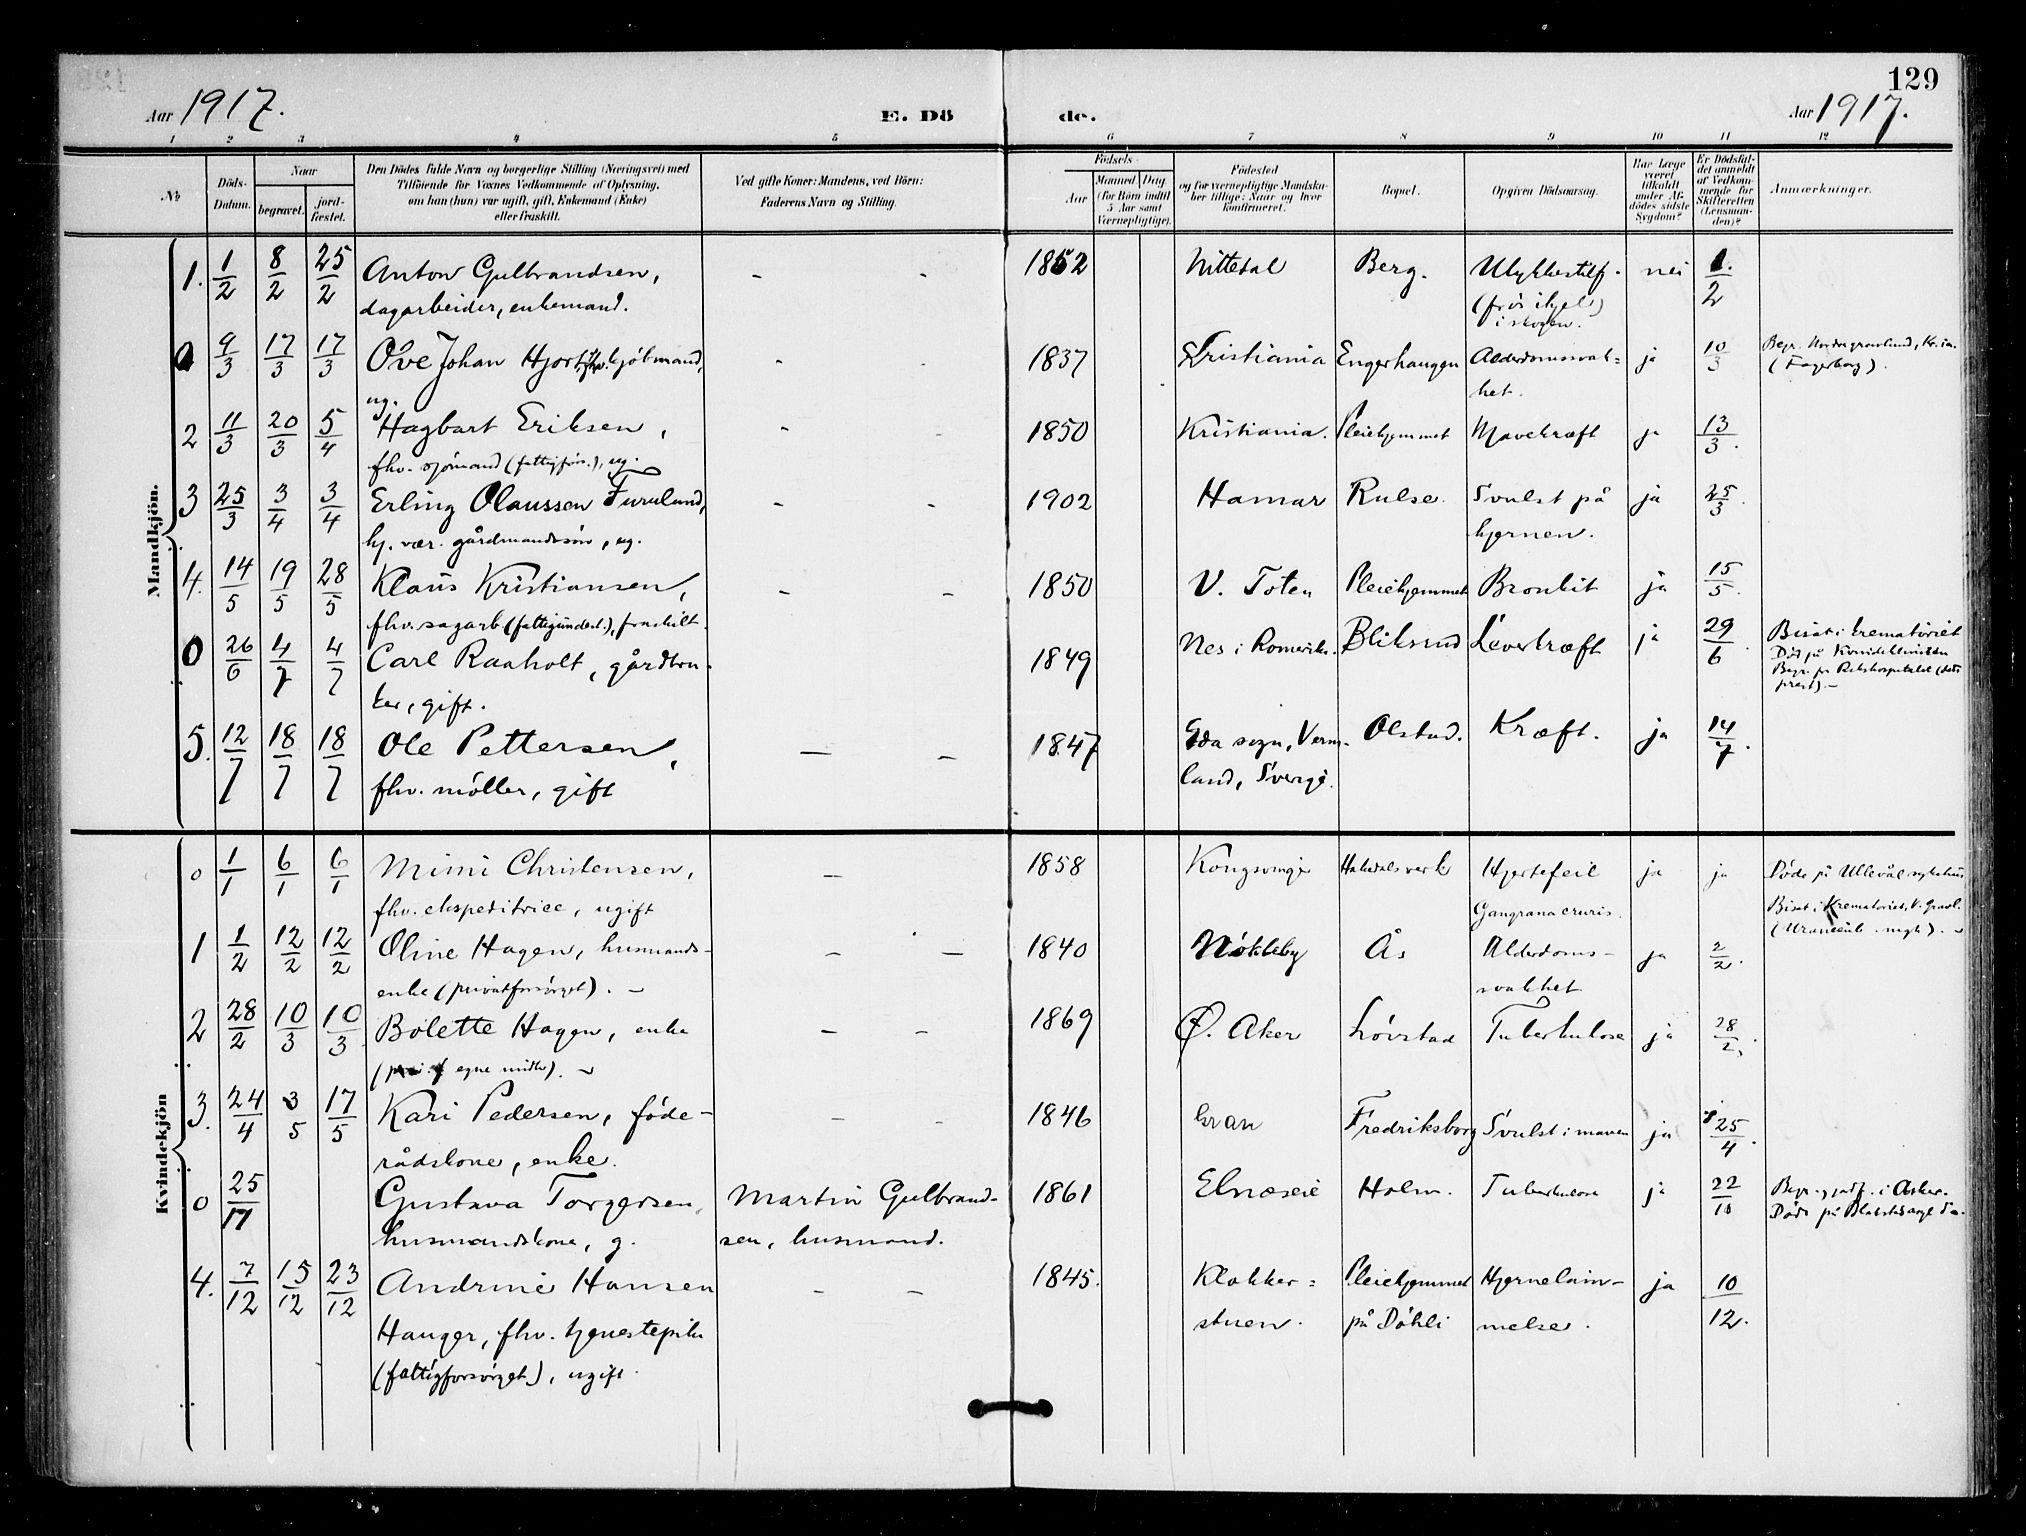 129
Aar 1917. E. Dö de. Aar 1917.
1 2 3 4 5 6 7 8 9 10 11 12
№
Döds-Datum.
Naar
begravet. jord-fæstet.
Den Dödes fulde Navn og borgerlige Stilling (Næringsvei) med
Tilföiende for Voxnes Vedkommende af Oplysning,
om han (hun) var ugift, gift, Enkemand (Enke)
eller fraskilt.
Ved gifte Koner: Mandens, ved Börn:
Faderens Navn og Stilling.
Födsels-
Aar Maaned. Dag.
(for Börn indtil
5 Aar samt
Værnepligtige).
Födested
og for værnepligtige Mandska-
ber tillige: Naar og hvor
konfirmeret.
Bopæl.
Opgiven Dödsaarsag.
Har Læge
været
tilkaldt
under Af-
dödes sidste
Sygdom?
Er Dödsfal-
det anmeldt
af Vedkom-
mende for
Skifteretten
(Lensman-
den)?
Anmærkninger.
Mandkjön.
1. 1/2 8/2 25/2 Anton Gulbrandsen, - - 1852 Nittedal Berg. Ulykkestilf. nei 1./2
dagarbeider, enkemand. (frös ihjel)
i skogen.
0 9/3 17/3 17/3 Ove Johan Hjort, fhv. kjöbmand, - - 1837 Kristiania Engerhaugen Alderdomssvak= ja 10/3 Begr. Nordre gravlund, Kr.ia.
ug. het. (Fagerborg).
2 11/3 20/3 5/4 Hagbart Eriksen, - - 1850 Kristiania. Pleiehjemmet Mavekræft ja 13/3.
fhv. sjömand (fattigfors.), ug.
3 25/3 3/4 3/4 Erling Olaussen Furulund, - - 1902 Hamar Rulse. Svulst på ja 25/3.
hj. vær. gårdmandssön, ug. hjernen.
4. 14/5 19/5 28/5 Klaus Kristiansen, - - 1850 V. Toten Pleiehjemmet Bronkit ja 15/5.
fhv. sagarb. (fattigunderst.), fraskilt.
0 26/6 4/7 4/7 Carl Raaholt, gårdbru- 1849 Nes i Romerike. Bliksrud Leverkræft ja 29/6 Bisat i krematoriet
ker, gift. Död på
Begr. pr Rikshospitalet (dets
prest). -
5. 12/7 18/7 18/7 Ole Pettersen, - - 1847 Eda sogn, Verm- Olstad. Kræft. ja 14/7.
fhv. möller, gift land, Sverige.
Kvindekjön
0 1/1 6/1 6/1 Mimi Christensen, - 1858 Kongsvinger Hakedalsverk Hjertefeil ja ja Döde på Ullevål sykehus
fhv. ekspeditrice, ugift Gangrana cruris. Bisat i Krematoriet, V. gravl.
1 1/2 12/2 12/2 Oline Hagen, husmands- - - 1840 Nökleby Ås Alderdoms- ja 2/2.
enke (privatforsörget). - svakhet
2 28/2 10/3 10/3 Bolette Hagen, enke - - 1869 Ø. Aker Lövstad Tuberkulose ja 28/2.
( egne midler). -
3. 24/4 3/5 17/5 Kari Pedersen, föde- - - 1846 Gran Fredriksborg Svulst i maven ja 25/4.
rådskone, enke.
0 25/11 Gustava Torgersen, Martin Gulbrand- 1861 Elnæseie Holm. Tuberkulose ja 22/10 Begr. og jordf. i Asker.
husmandskone, g. sen, husmand. Döde på
4. 7/12 15/12 23/12 Andrine Hansen - - 1845. Klokker= Pleiehjemmet Hjernelam- ja 10/12.
Hauger, fhv. tjenestepike stuen. på Döhli melse.
(fattigforsörget), ugift.